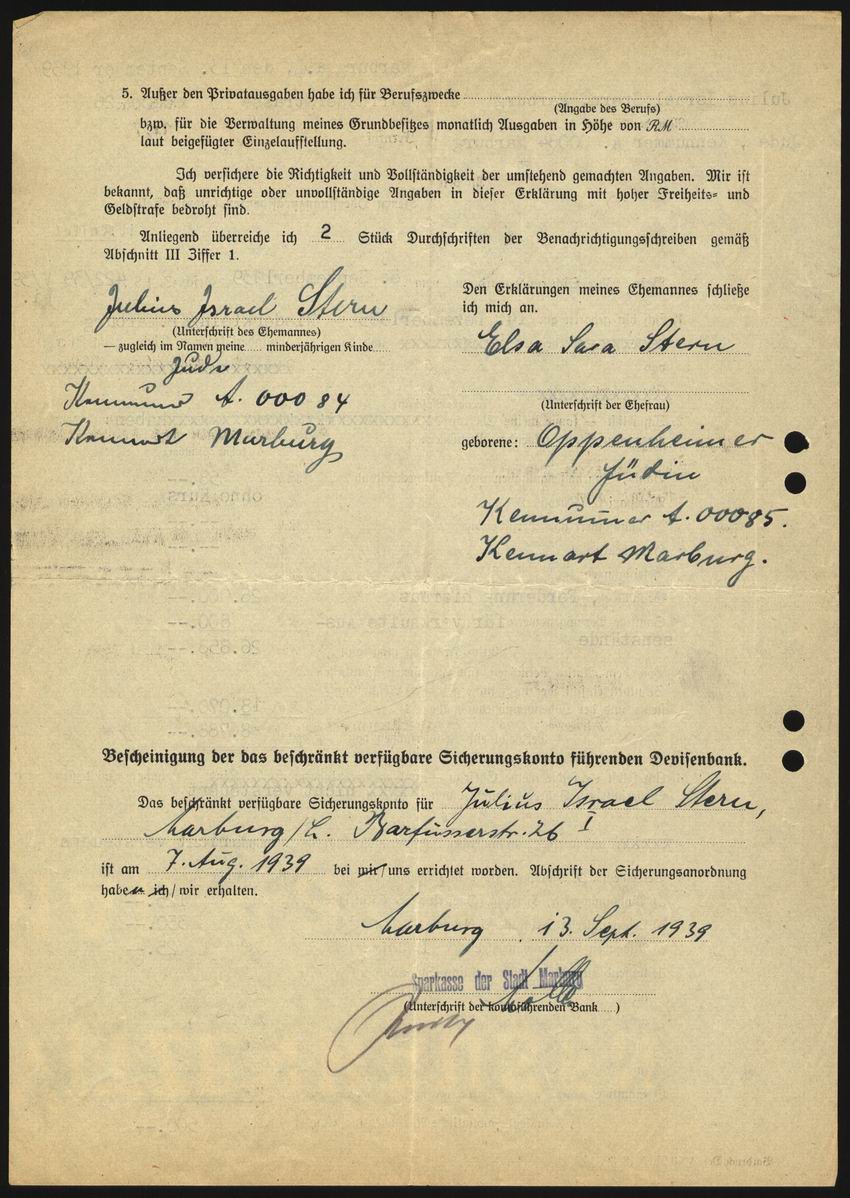 5. Außer den Privatausgaben habe ich für Berufszwecke
(Angabe des Berufs)
bzw. für die Verwaltung meines Grundbesitzes monatlich Ausgaben in Höhe von RM
laut beigefügter Einzelaufstellung.
Ich versichere die Richtigkeit und Vollständigkeit der umstehend gemachten Angaben. Mir ist
bekannt, daß unrichtige oder unvollständige Angaben in dieser Erklärung mit hoher Freiheits- und
Geldstrafe bedroht sind.
Anliegend überreiche ich 2 Stück Durchschriften der Benachrichtigungsschreiben gemäß
Abschnitt III Ziffer 1.
Julius Israel Stern
(Unterschrift des Ehemannes)
— zugleich im Namen meine..... minderjährigen Kinde.....
Jude
Kennummer A. 00084
Kennort Marburg
Den Erklärungen meines Ehemannes schließe
ich mich an.
Elsa Sara Stern
(Unterschrift der Ehefrau)
geborene: Oppenheimer
Jüdin
Kennummer A. 00085.
Kennart Marburg.
Bescheinigung der das beschränkt verfügbare Sicherungskonto führenden Devisenbank.
Das beschränkt verfügbare Sicherungskonto für Julius Israel Stern,
Marburg/L. Barfüsserstr. 26 I
ist am 7. Aug. 1939 bei mir/uns errichtet worden. Abschrift der Sicherungsanordnung
haben ich/wir erhalten.
Marburg, 13. Sept. 1939
Sparkasse der Stadt Marburg
(Unterschrift der kontoführenden Bank.....)